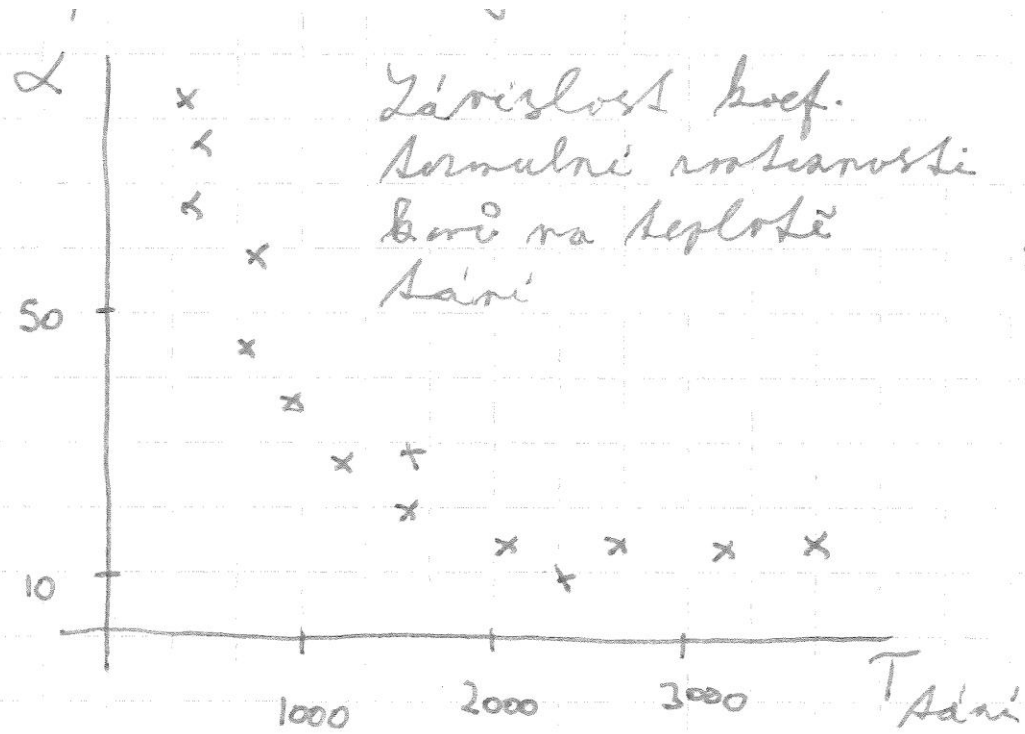 α
Závislost koef.
termální roztažnosti
kovů na teplotě
tání
50
10
1000 2000 3000
T tání